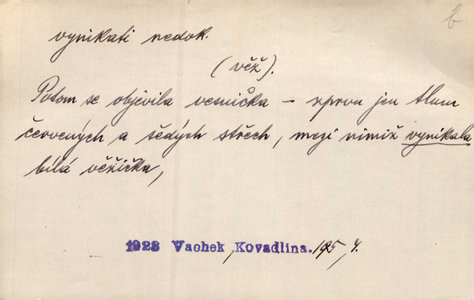 b
vynikati nedok.
(věž).
Potom se objevila vesnička – zprvu jen tlum
červených a šedých střech, mezi nimiž vynikala
bílá věžička,
1923 Vachek, Kovadlina. 195, 4.